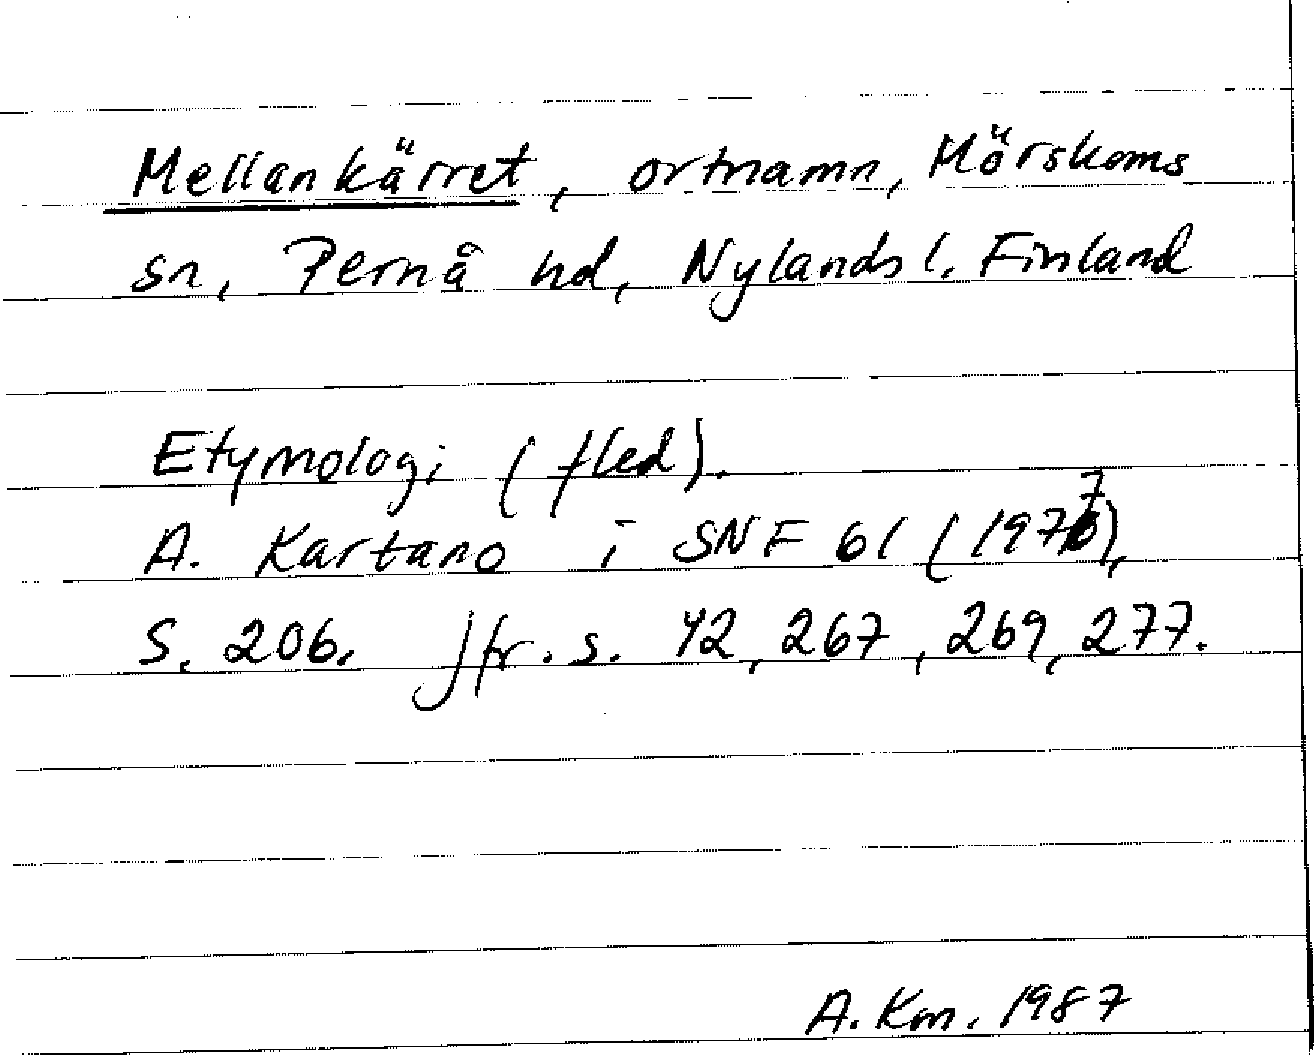 Mellankärret, ortnamn, Mörskoms
sn, Pernå hd, Nylands l. Finland
Etymologi (fled).
A. Kartano i SNF 61 (1977),
S. 206. Jfr. s. 42, 267, 269, 277.
A. Km. 1987